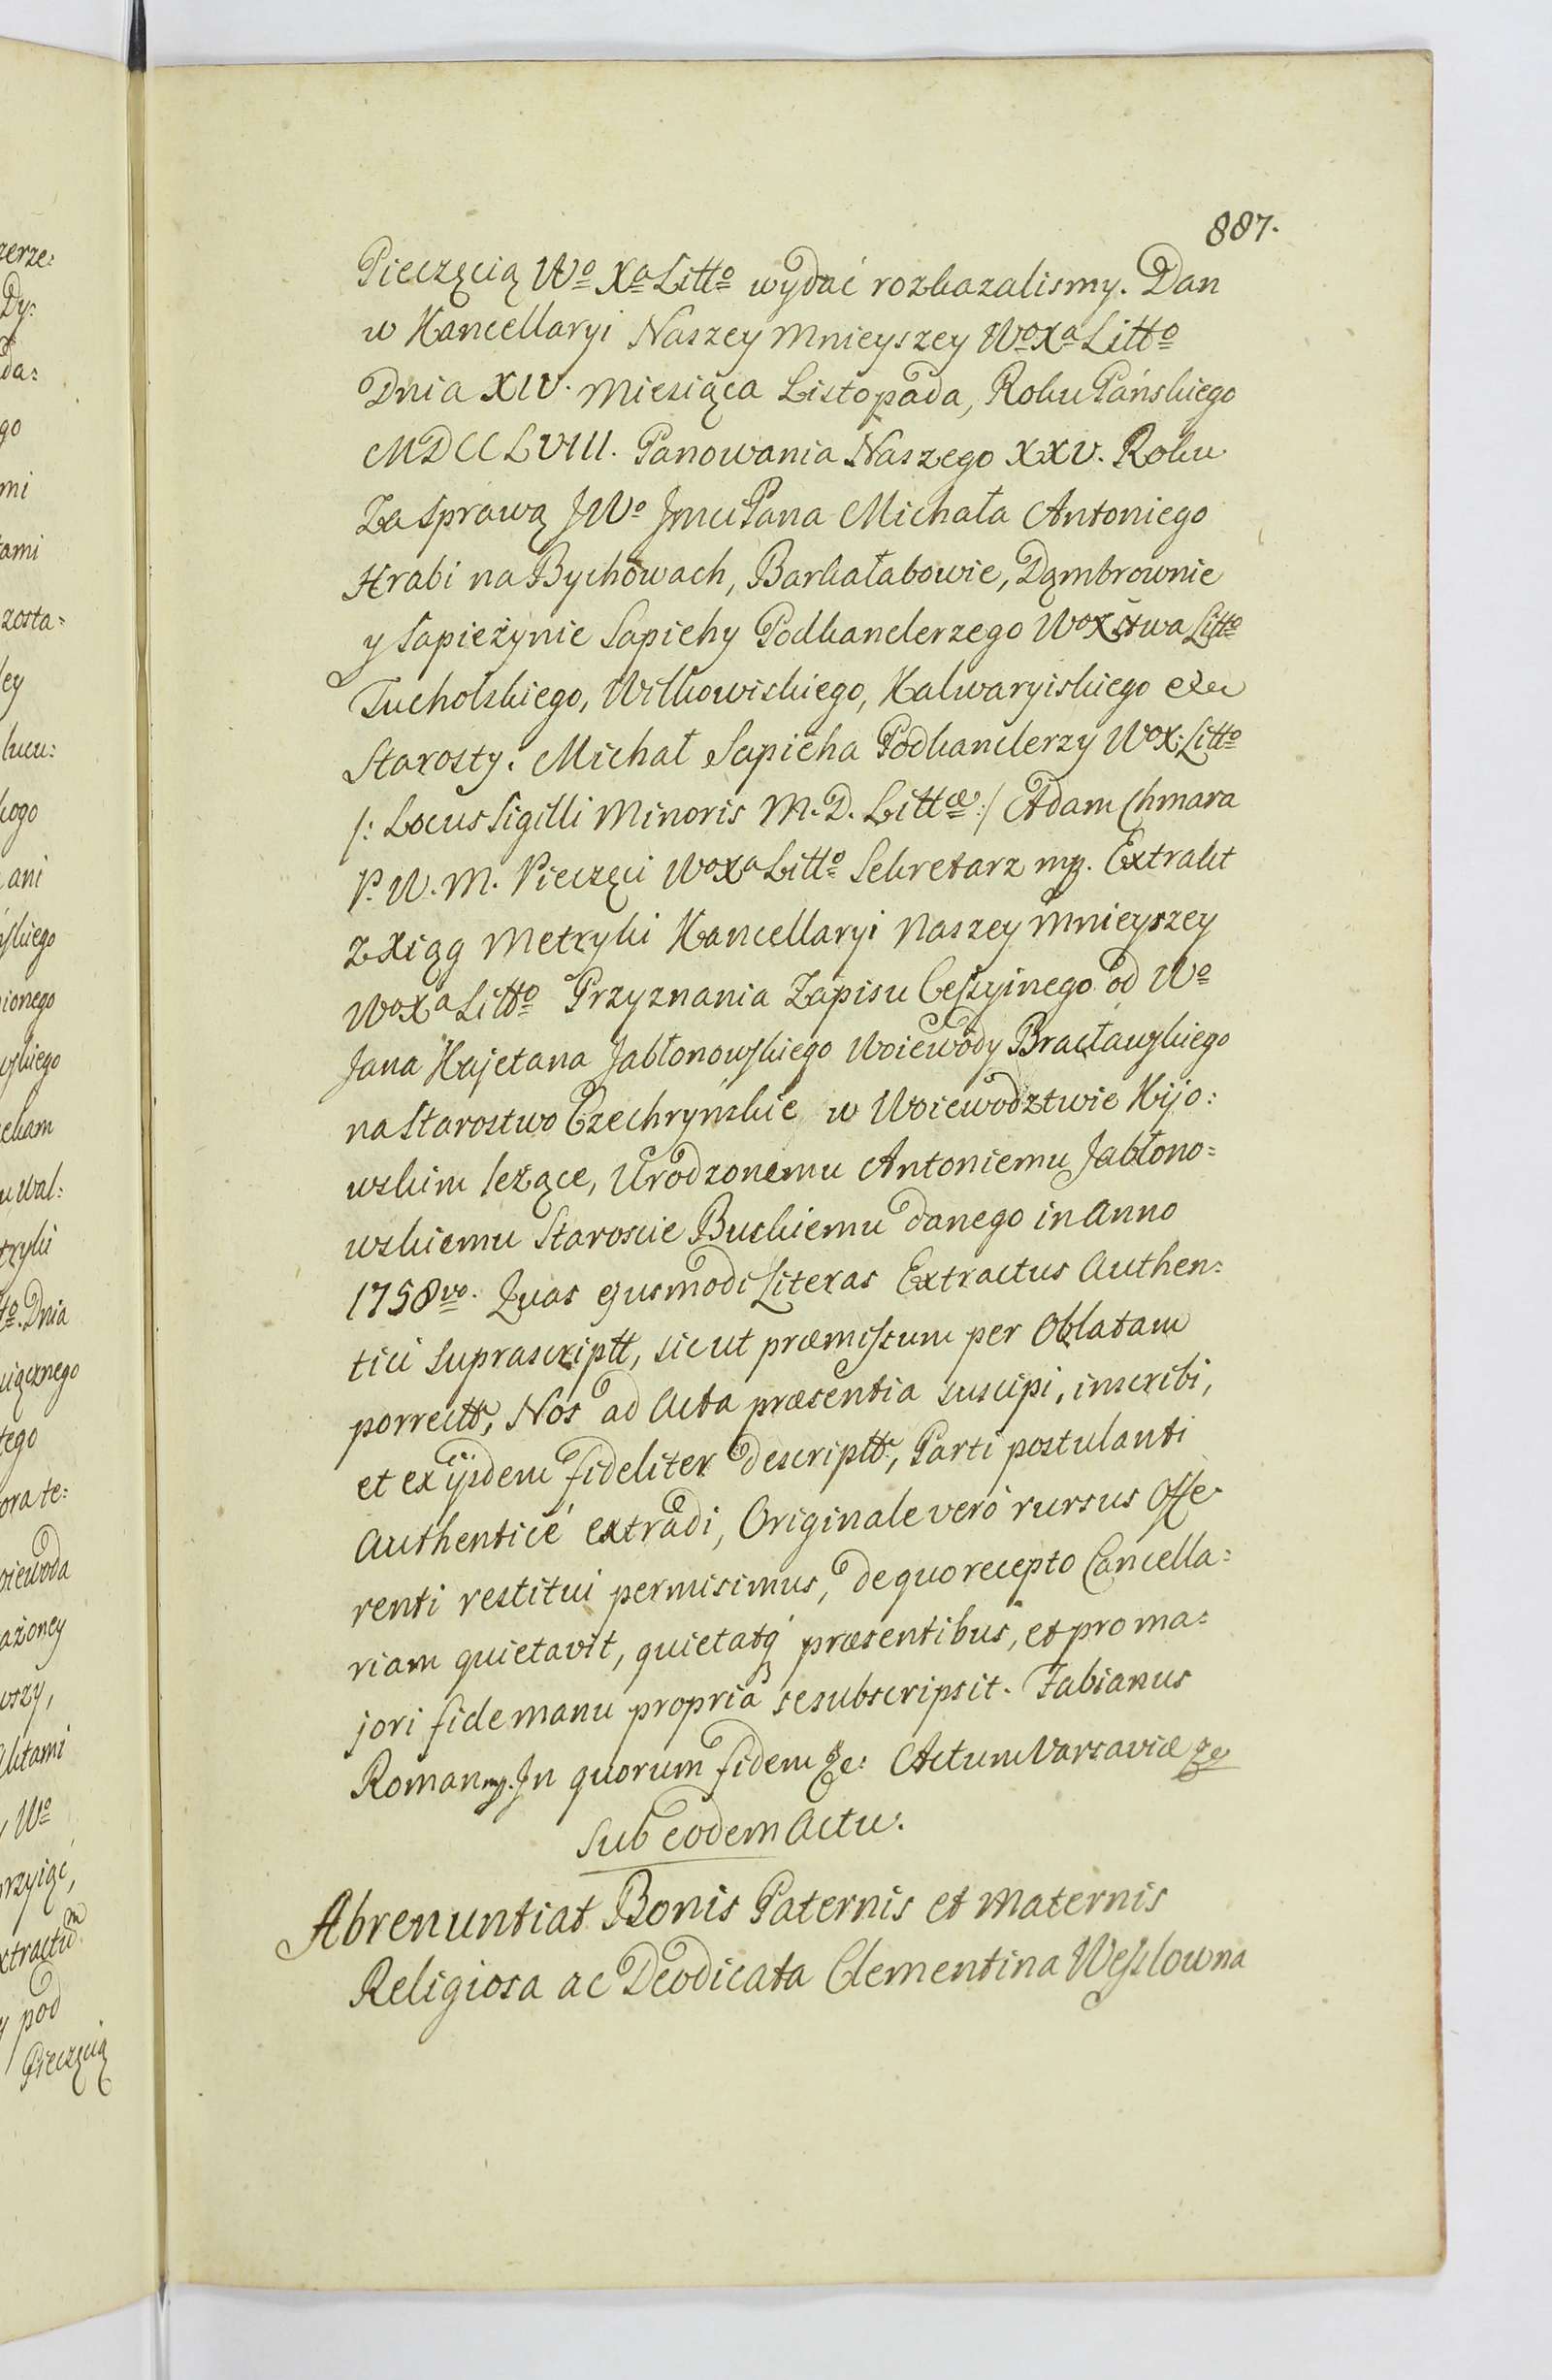 887.
Pieczęcią Wo Xa Litto wydać rozkazalismy. Dan
w Kancellaryi Naszey Mnieyszey WoXa Litto
Dnia XIV. Miesiąca Listopada, Roku Pańskiego
MDCCLVIII. Panowania Naszego XXV. Roku
Za Sprawą JWo Jmci Pana Michała Antoniego
Hrabi na Bychowach, Barkałabowie, Dąmbrownie
y Sapieżynie Sapiehy Podkanclerzego WoXstwa Litto
Tucholskiego, Wilkowiskiego, Kalwaryiskiego etc
Starosty. Michał Sapieha Podkanclerzy WoX: Litto
/: Locus Sigilli Minoris M. D. Littæ :/ Adam Chmara
P. W. M. Pieczęci WoXa Litto Sekretarz mp. Extrakt
z Xiąg Metryki Kancellaryi Naszey Mnieyszey
WoXa Litto Przyznania Zapisu Cessyinego od Wo
Jana Kajetana Jabłonowskiego Woiewody Bracławskiego
na Starostwo Czechryńskie w Woiewodztwie Kijo:
wskim leżące, Urodzonemu Antoniemu Jabłono:
wskiemu Staroscie Buskiemu danego in Anno
1758vo. Quas ejusmodi Literas Extractus Authen:
tici suprascriptt, sicut præmissum per Oblatam
porrectt, Nos ad Acta præsentia suscipi, inscribi,
et ex ijsdem fideliter descriptt, Parti postulanti
Authenticé extradi, Originale veró rursus Offe
renti restitui permisimus, de quo recepto Cancella:
riam quietavit, quietatq præsentibus, et pro ma:
jori fide manu propria se subscripsit. Fabianus
Roman mp. In quorum fidem &c: Actum Varsaviæ &c
Sub eodem Actu.
Abrenuntiat Bonis Paternis et Maternis
Religiosa ac Deodicata Clementina Wesslowna